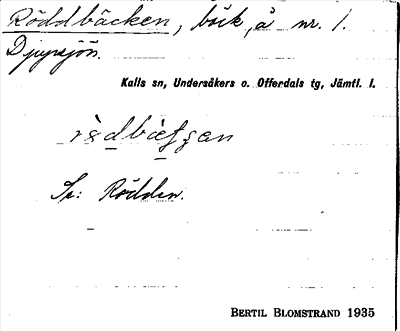 Röddbäcken, bäck, å nr. 1.
Djupsjön.
Kalls sn, Undersåkers o. Offerdals tg, Jämtl. l.
Se: Rödden.
BERTIL BLOMSTRAND 1935